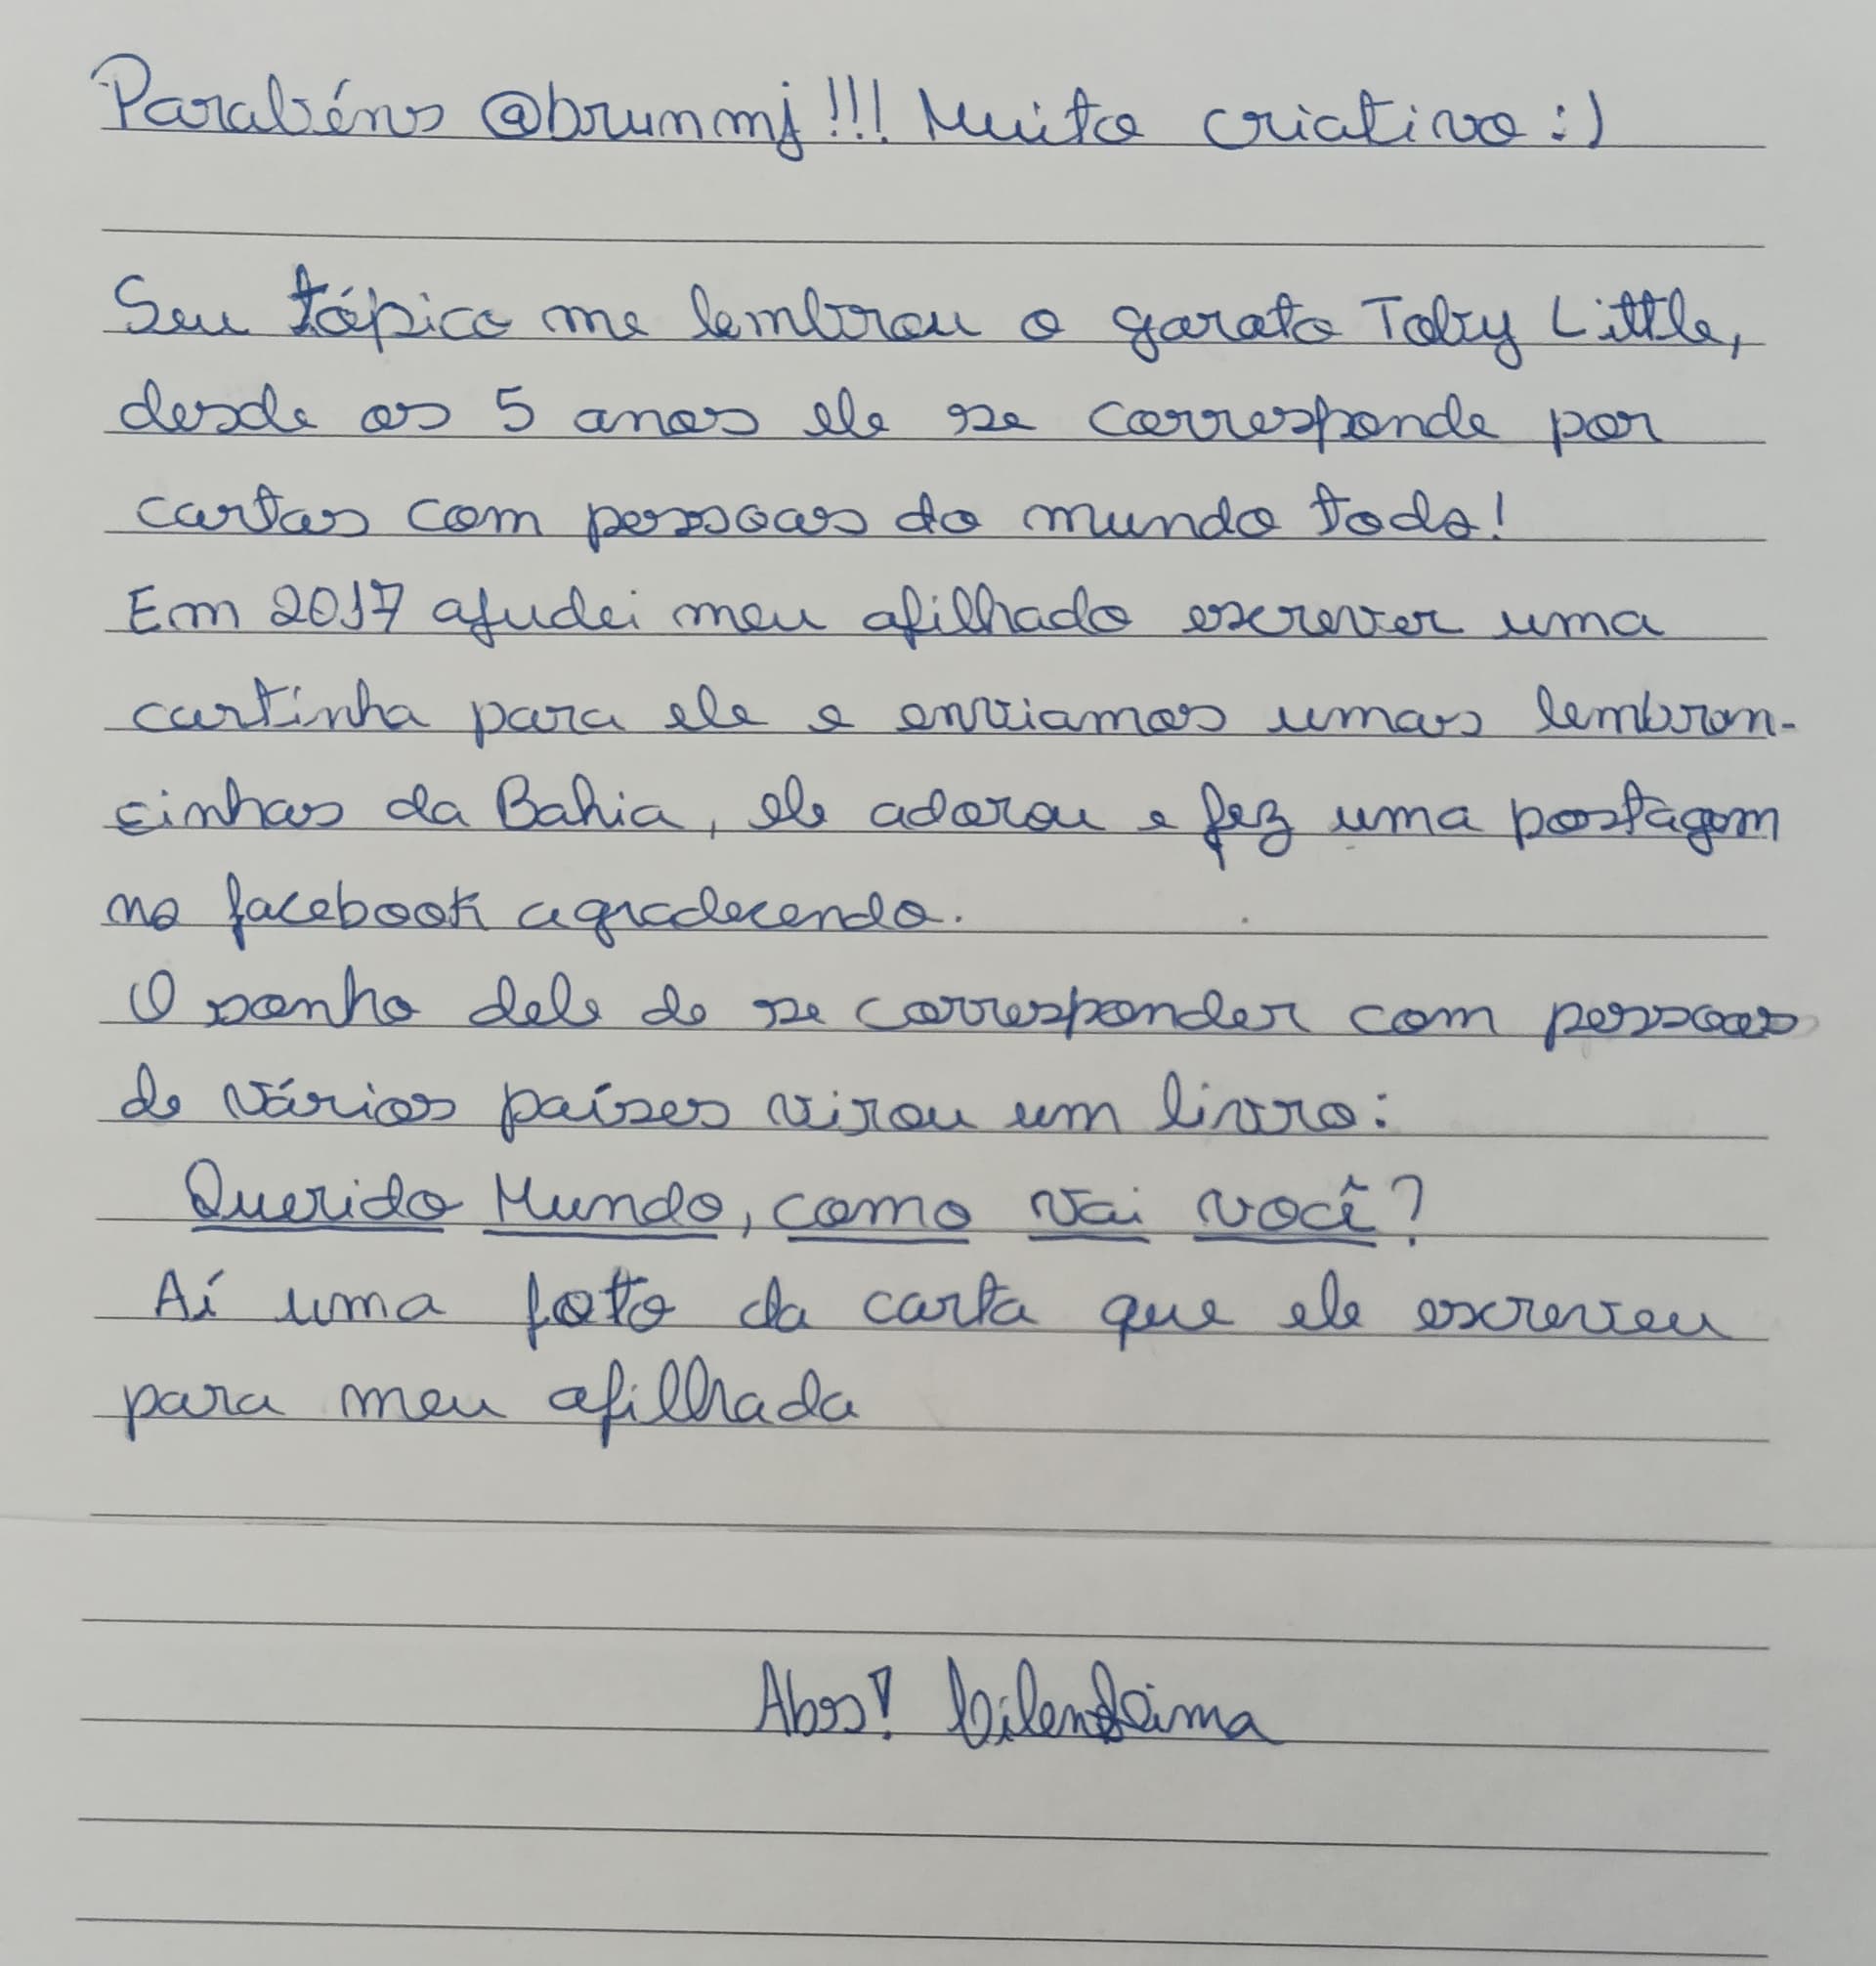 Parabéns @brunmmj!!! Muito criativo :)
Seu tópico me lembrou o garoto Toby Little,
desde os 5 anos ele se corresponde por
cartas com pessoas do mundo todo!
Em 2017 ajudei meu afilhado escrever uma
cartinha para ele e enviamos umas lembran-
cinhas da Bahia, ele adorou e fez uma postagem
no facebook agradecendo.
O sonho dele de se corresponder com pessoas
de vários países virou um livro:
Querido Mundo, como vai você?
Aí uma foto da carta que ele escreveu
para meu afilhada
Abss!